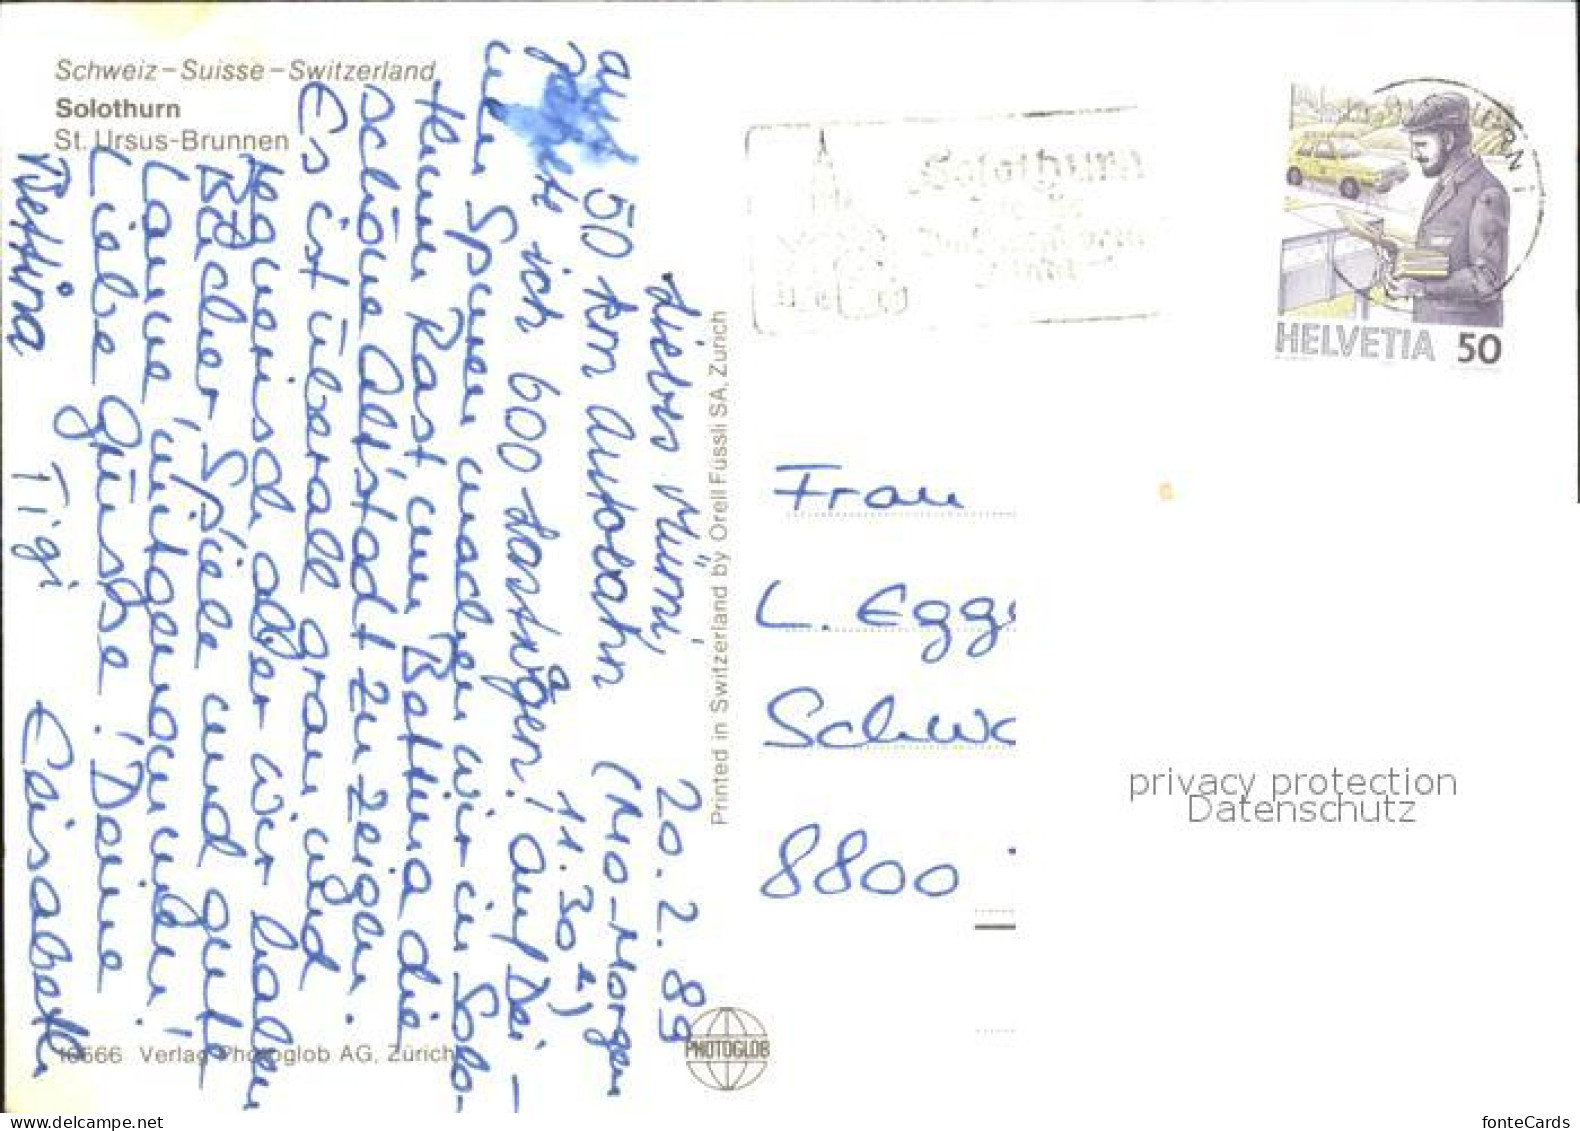 Schweiz – Suisse – Switzerland
Solothurn
St. Ursus-Brunnen
Liebes Mümi, 20.2.89
auf 50 km Autobahn (Mo-Morgen
zählte ich 600 Lastwagen! 11.30 h)
Auf Dei-
nen Spuren machen wir in Solo-
thurn Rast um Bettina die
schöne Altstadt zu zeigen.
Es ist überall grau und
regnerisch aber wir haben
Bücher, Spiele und gute
Laune mitgenommen!
Liebe Grüsse! Deine
Bettina Tigi Elisabeth
Printed in Switzerland by Orell Füssli SA, Zürich
16666 Verlag Photoglob AG, Zürich
PHOTOGLOB
Solothurn
HELVETIA 50
Frau
L. Egg
Schw
8800
privacy protection
Datenschutz
www.delcampe.net
fonteCards